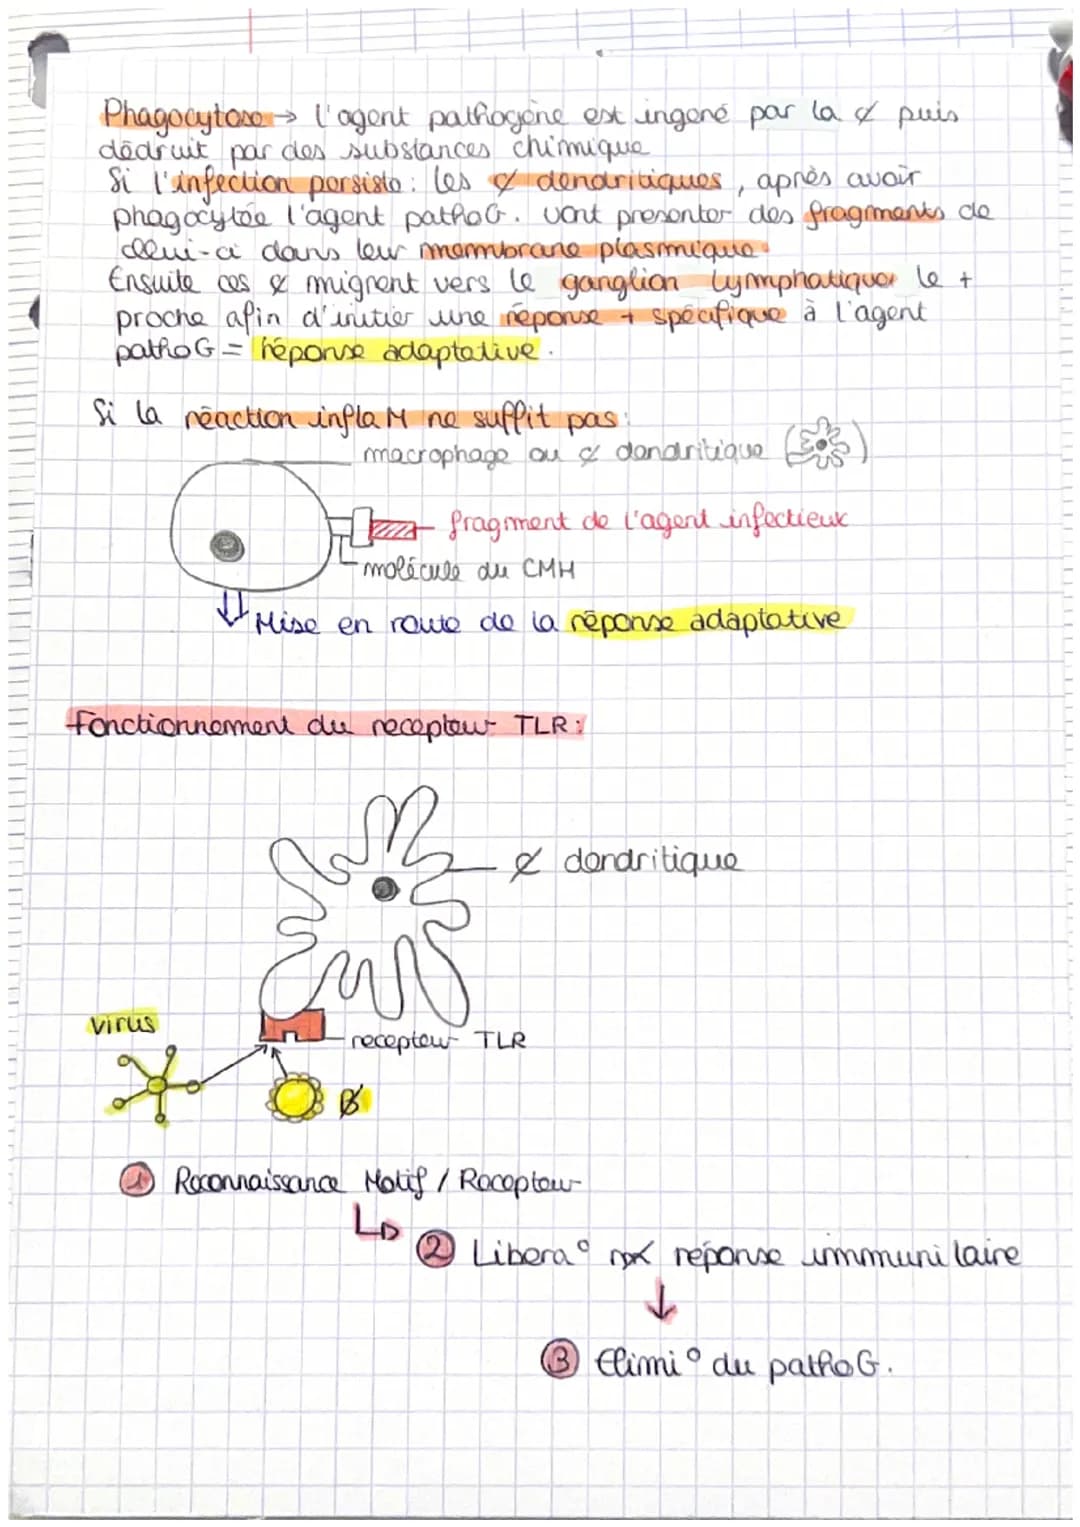 Phagocytose → l'agent pathogène est ingéré par la ¢ puis
dédruit par des substances chimique
Si l'infection persiste : les ¢ dendritiques, après avoir
phagocytée l'agent pathoG. vont presenter des fragments de
celui-ci dans leur membrane plasmique.
Ensuite ces ¢ migrent vers le ganglion lymphatique le +
proche afin d'initier une réponse + spécifique à l'agent
pathoG = réponse adaptative.
Si la réaction inflaM ne suffit pas :
macrophage ou ¢ dendritique ( )
fragment de l'agent infectieux
molécule du CMH
⇓ Mise en route de la réponse adaptative
Fonctionnement du recepteur TLR :
¢ dendritique
virus
recepteur TLR
B
① Reconnaissance Motif / Recepteur
② Libera° réponse immunilaire
↓
③ Elimi° du pathoG.